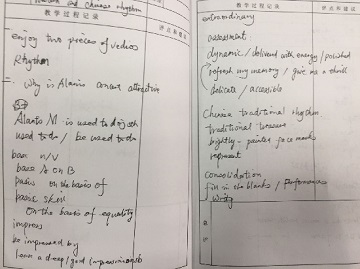 and Chinese rhythm
教学过程记录
评点和建议
enjoy two pieces of vedios
Rhythm
= Why is Alanis concert attractive
Alanis M is used to doing sth
used to do / be used to do
base n/v
base A on B
basis on the basis of
basic skill
On the basis of equality
impress
be impressed by
leave a deep / good impression on sb
教学过程记录
评点和建议
extraordinary
assessment
dynamic / delivered with energy / polished
refresh my memory / give me a thrill
delicate / accessible
Chinese traditional rhythm
traditional treasure
brightly-painted face masks
represent
Consolidation
fill in the blanks / Performance
Writing